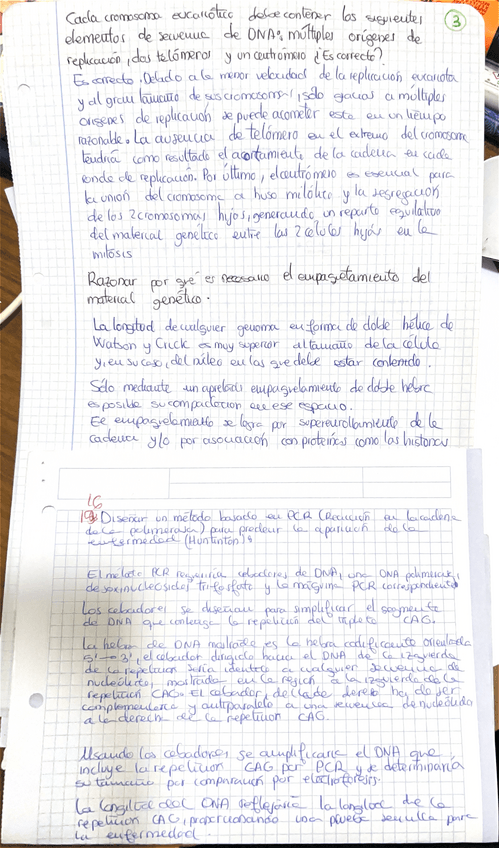 Cada cromosoma eucariótico debe contener los siguientes
elementos de secuencia de DNA: múltiples orígenes de
replicación, dos telómeros y un centrómero ¿Es correcto?
3
Es correcto. Debido a la menor velocidad de la replicación eucariota
y al gran tamaño de sus cromosomas, sólo gracias a múltiples
orígenes de replicación se puede acometer esta en un tiempo
razonable. La ausencia de telómero en el extremo del cromosoma
tendría como resultado el acortamiento de la cadena en cada
ronda de replicación. Por último, el centrómero es esencial para
la unión del cromosoma a huso mitótico y la segregación
de los 2 cromosomas hijos, generando un reparto equitativo
del material genético entre las 2 células hijas en la
mitosis
Razonar por qué es necesario el empaquetamiento del
material genético.
La longitud de cualquier genoma en forma de doble hélice de
Watson y Crick es muy superior al tamaño de la célula
y, en su caso, del núcleo en las que debe estar contenido.
Sólo mediante un apretado empaquetamiento de doble hebra
es posible su compactación en ese espacio.
Ee empaquetamiento se logra por superenrollamiento de la
cadena y/o por asociación con proteínas como las histonas
16
Diseñar un método basado en PCR (Reacción en la cadena
de la polimerasa) para predecir la aparición de la
enfermedad (Huntinton)
El método PCR requeriría cebadores de DNA, una DNA polimerasa,
desoxinucleósidos trifosfato y la máquina PCR correspondiente
Los cebadores se diseñan para simplificar el segmento
de DNA que contenga la repetición del triplete CAG.
La hebra de DNA mostrada es la hebra codificante orientada
5' → 3', el cebador dirigido hacia el DNA de la izquierda
de la repetición sería idéntico a cualquier secuencia de
nucleótidos mostrada en la región a la izquierda de la
repetición CAG. El cebador de lado derecho ha de ser
complementario y antiparalelo a una secuencia de nucleótidos
a la derecha de la repetición CAG.
Usando los cebadores se amplificaría el DNA que
incluye la repetición CAG por PCR y se determinaría
su tamaño por comparación por electroforesis.
La longitud del DNA reflejaría la longitud de la
repetición CAG, proporcionando una prueba sencilla para
la enfermedad.